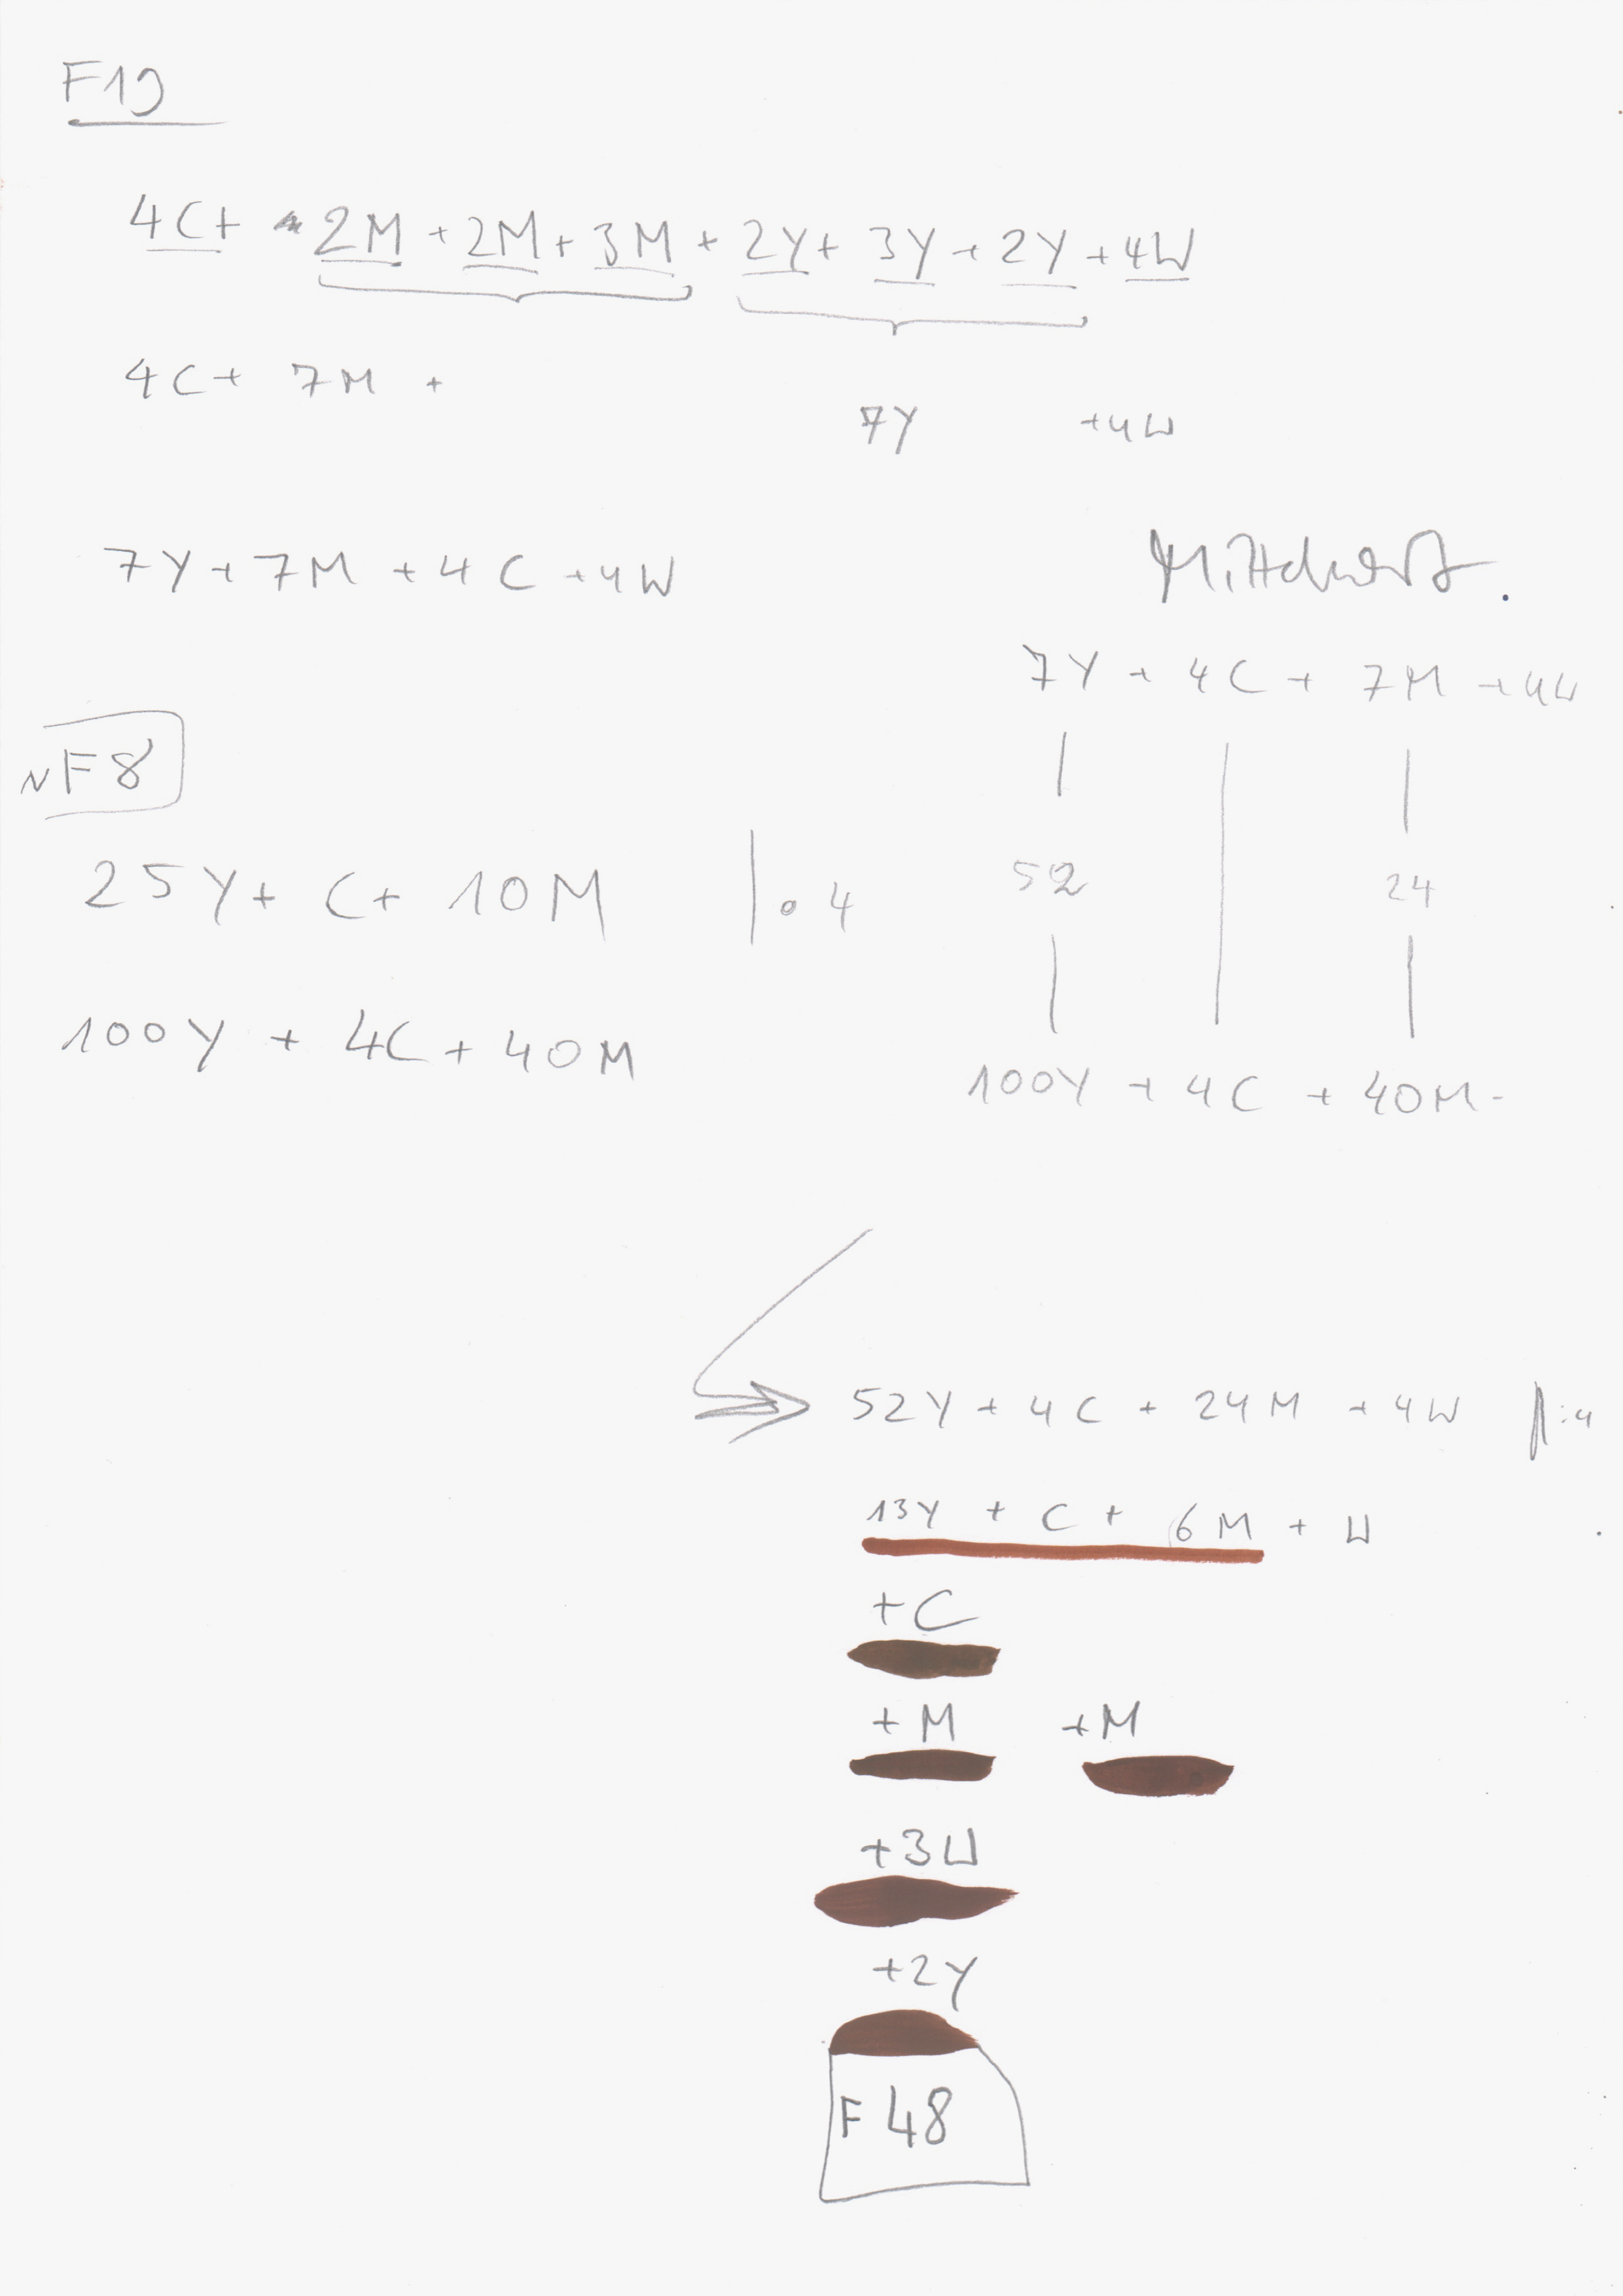 F19
4C+ 2M + 2M + 3M + 2Y + 3Y + 2Y + 4W
4C + 7M +
7Y +4W
7Y + 7M + 4C + 4W
Mittelwert.
7Y + 4C + 7M + 4W
NF8
52 24
25Y + C + 10M | • 4
100Y + 4C + 40M
100Y + 4C + 40M -
52Y + 4C + 24M + 4W |:4
13Y + C + 6M + W
+C
+M +M
+3W
+2Y
F48